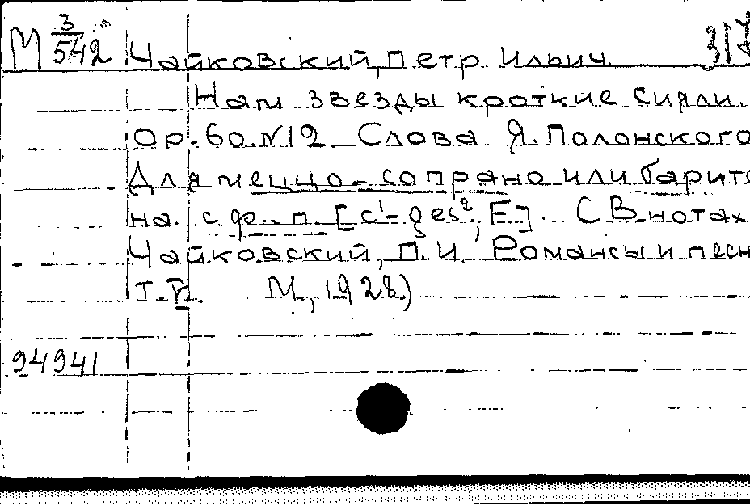 М 3/542 Чайковский, Петр Ильич 317
Нам звезды кроткие сияли.
Ор. 60. №12 Слова Я. Полонского
Для меццо-сопрано или барито
на с ф.-п. [c¹-ges², E] (В нотах
Чайковский, П.И. Романсы и песн
Т. VI. М., 1928)
94941